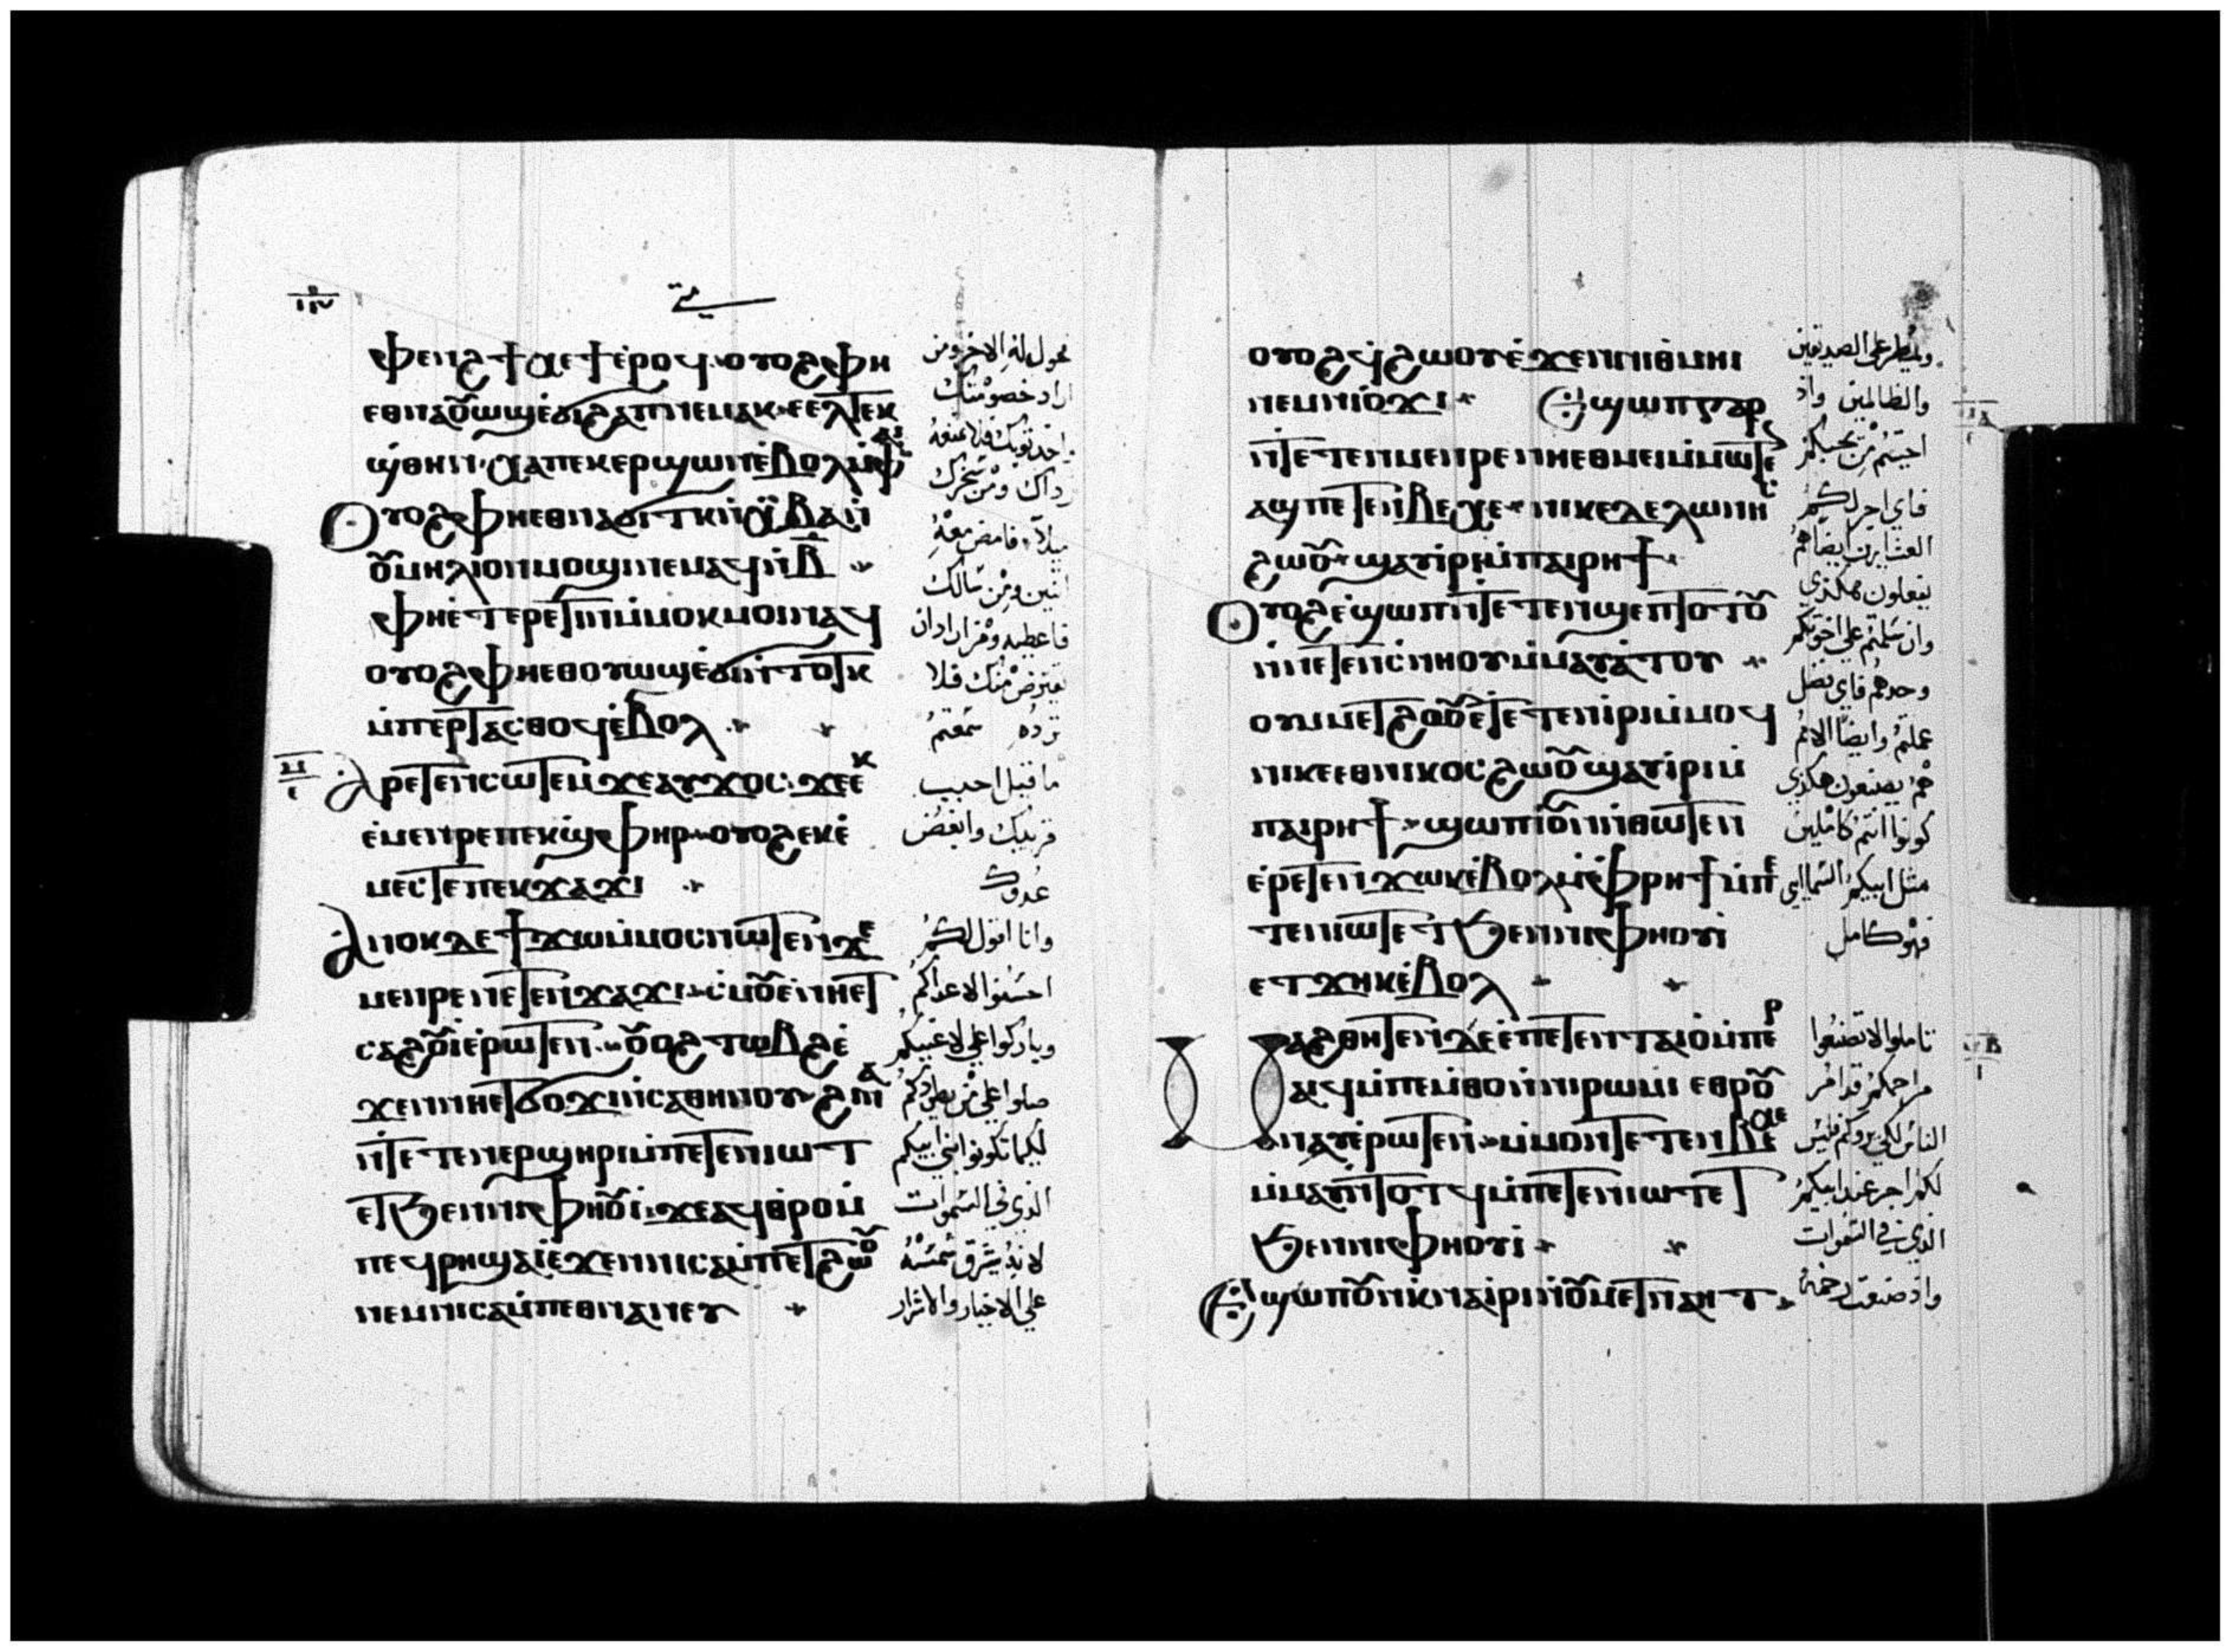 متى
ⲫⲉⲛϩ ϯⲕⲉϯ ⲉⲣⲟϥ ⲟⲩⲟϩ ⲫⲏ
ⲉⲑⲛⲁⲟⲩⲱϣ ⲉϭⲓϩⲁⲡ ⲛⲉⲙⲁⲕ ⲉⲉⲗ ⲧⲉⲕ
ϣⲑⲏⲛ ⲭⲁ ⲡⲉⲕⲉⲣϣⲱⲛ ⲉⲃⲟⲗ ⲛⲥⲱϥ
ⲟⲩⲟϩ ⲫⲏⲉⲑⲛⲁϭⲓⲧⲕ ⲛⲭⲃⲁ ⲛ
ⲟⲩⲙⲏⲗⲓⲟⲛ ⲙⲟϣⲓ ⲛⲉⲙⲁϥ ⲛⲃ
ⲫⲏⲉⲧⲉⲣⲉⲧⲓⲛ ⲙⲙⲟⲕ ⲙⲟⲓ ⲛⲁϥ
ⲟⲩⲟϩ ⲫⲏⲉⲑⲟⲩⲱϣ ⲉϭⲓ ⲛⲧⲟⲧⲕ
ⲙⲡⲉⲣⲧⲁⲥⲑⲟϥ ⲉⲃⲟⲗ
ⲁⲣⲉⲧⲉⲛⲥⲱⲧⲉⲙ ϫⲉ ⲁⲩϫⲟⲥ ϫⲉ ⲉⲕ
ⲉⲙⲉⲛⲣⲉ ⲡⲉⲕϣⲫⲏⲣ ⲟⲩⲟϩ ⲉⲕⲉ
ⲙⲉⲥⲧⲉ ⲡⲉⲕϫⲁϫⲓ
ⲁⲛⲟⲕ ⲇⲉ ϯϫⲱ ⲙⲙⲟⲥ ⲛⲱⲧⲉⲛ ϫⲉ
ⲙⲉⲛⲣⲉ ⲛⲉⲧⲉⲛϫⲁϫⲓ ⲥⲙⲟⲩ ⲉⲛⲏⲉⲧ
ⲥⲁϩⲟⲩⲓ ⲉⲣⲱⲧⲉⲛ ⲟⲩⲟϩ ⲧⲱⲃϩ ⲉ
ϫⲉⲛ ⲛⲏⲉⲧϭⲟϫⲓ ⲛⲥⲁⲑⲏⲛⲟⲩ ϩⲓⲛⲁ
ⲛⲧⲉⲧⲉⲛⲉⲣϣⲏⲣⲓ ⲙⲡⲉⲧⲉⲛⲓⲱⲧ
ⲉⲧϧⲉⲛ ⲛⲓⲫⲏⲟⲩⲓ ϫⲉ ⲁϥⲑⲣⲟ ⲙ
ⲡⲉϥⲣⲏ ϣⲁⲓ ⲉϫⲉⲛ ⲛⲓⲥⲁⲙⲡⲉⲧϩⲱⲟⲩ
ⲛⲉⲙ ⲛⲓⲥⲁⲙⲡⲉⲑⲛⲁⲛⲉⲩ
اراد خصومتك
بقترض منك فلا
ترده سمعتم
ما قيل احبب
قريبك وابغض
عدوك
وانا اقول لكم
احسنوا الاعداكم
وباركوا على لاعنيكم
صلوا على من يطردكم
لكيما تكونوا بني ابيكم
الذي في السموات
لانه يشرق شمسه
على الاخيار والاشرار
ⲟⲩⲟϩ ϥϩⲱⲟⲩ ⲉϫⲉⲛ ⲛⲓⲑⲙⲏⲓ
ⲛⲉⲙ ⲛⲓⲟϫⲓ ⲉϣⲱⲡ ⲅⲁⲣ
ⲛⲧⲉⲧⲉⲛⲙⲉⲛⲣⲉ ⲛⲏⲉⲑⲙⲉⲓ ⲙⲙⲱⲧⲉⲛ
ⲁϣ ⲡⲉ ⲡⲉⲧⲉⲛⲃⲉⲭⲉ ⲛⲓⲕⲉⲧⲉⲗⲱⲛⲏⲥ
ϩⲱⲟⲩ ϣⲁⲩⲓⲣⲓ ⲙⲡⲁⲓⲣⲏϯ
ⲟⲩⲟϩ ⲉϣⲱⲡ ⲛⲧⲉⲧⲉⲛϣⲉⲡⲧⲟⲧⲟⲩ
ⲛⲛⲉⲧⲉⲛⲥⲛⲏⲟⲩ ⲙⲙⲁⲩⲁⲧⲟⲩ
ⲟⲩ ⲙⲙⲉⲧϩⲟⲩⲟ ⲉⲧⲉⲧⲉⲛⲓⲣⲓ ⲙⲙⲟϥ
ⲛⲓⲕⲉⲉⲑⲛⲓⲕⲟⲥ ϩⲱⲟⲩ ϣⲁⲩⲓⲣⲓ ⲙ
ⲡⲁⲓⲣⲏϯ ϣⲱⲡⲓ ⲟⲩⲛ ⲛⲑⲱⲧⲉⲛ
ⲉⲣⲉⲧⲉⲛϫⲏⲕ ⲉⲃⲟⲗ ⲙⲫⲣⲏϯ ⲙⲡⲉ
ⲧⲉⲛⲓⲱⲧ ⲉⲧϧⲉⲛ ⲛⲓⲫⲏⲟⲩⲓ
ⲉⲧϫⲏⲕ ⲉⲃⲟⲗ
ⲙⲁϩⲑⲏⲧⲉⲛ ⲇⲉ ⲉⲡⲉⲧⲉⲛⲧⲁⲓⲟ ⲙⲡⲉⲣ
ⲁⲓϥ ⲙⲡⲉⲙⲑⲟ ⲛⲛⲓⲣⲱⲙⲓ ⲉⲑⲣⲟⲩ
ⲛⲁⲩ ⲉⲣⲱⲧⲉⲛ ⲙⲙⲟⲛⲧⲉⲧⲉⲛ ⲃⲉⲭⲉ
ⲙⲙⲁⲩ ⲛⲧⲟⲧϥ ⲙⲡⲉⲧⲉⲛⲓⲱⲧ ⲉⲧ
ϧⲉⲛ ⲛⲓⲫⲏⲟⲩⲓ
ⲉϣⲱⲡ ⲟⲩⲛ ⲕⲛⲁⲓⲣⲓ ⲛⲟⲩⲙⲉⲧⲛⲁⲏⲧ
ويمطر على الصديقين
والظالمين واذ
احببتم من يحبكم
فاي اجر لكم
العشارين ايضا هم
يفعلون هكذي
وان سلمتم على اخوتكم
وحدهم فاي فضل
عملتم وايضا الامم
هم يصنعون هكذي
كونوا انتم كاملين
مثل ابيكم السمااي
فهو كامل
تاملوا لا تصنعوا
مراحمكم قدام
الناس لكي يروكم فليس
لكم اجر عند ابيكم
الذي في السموات
واذ صنعت رحمة